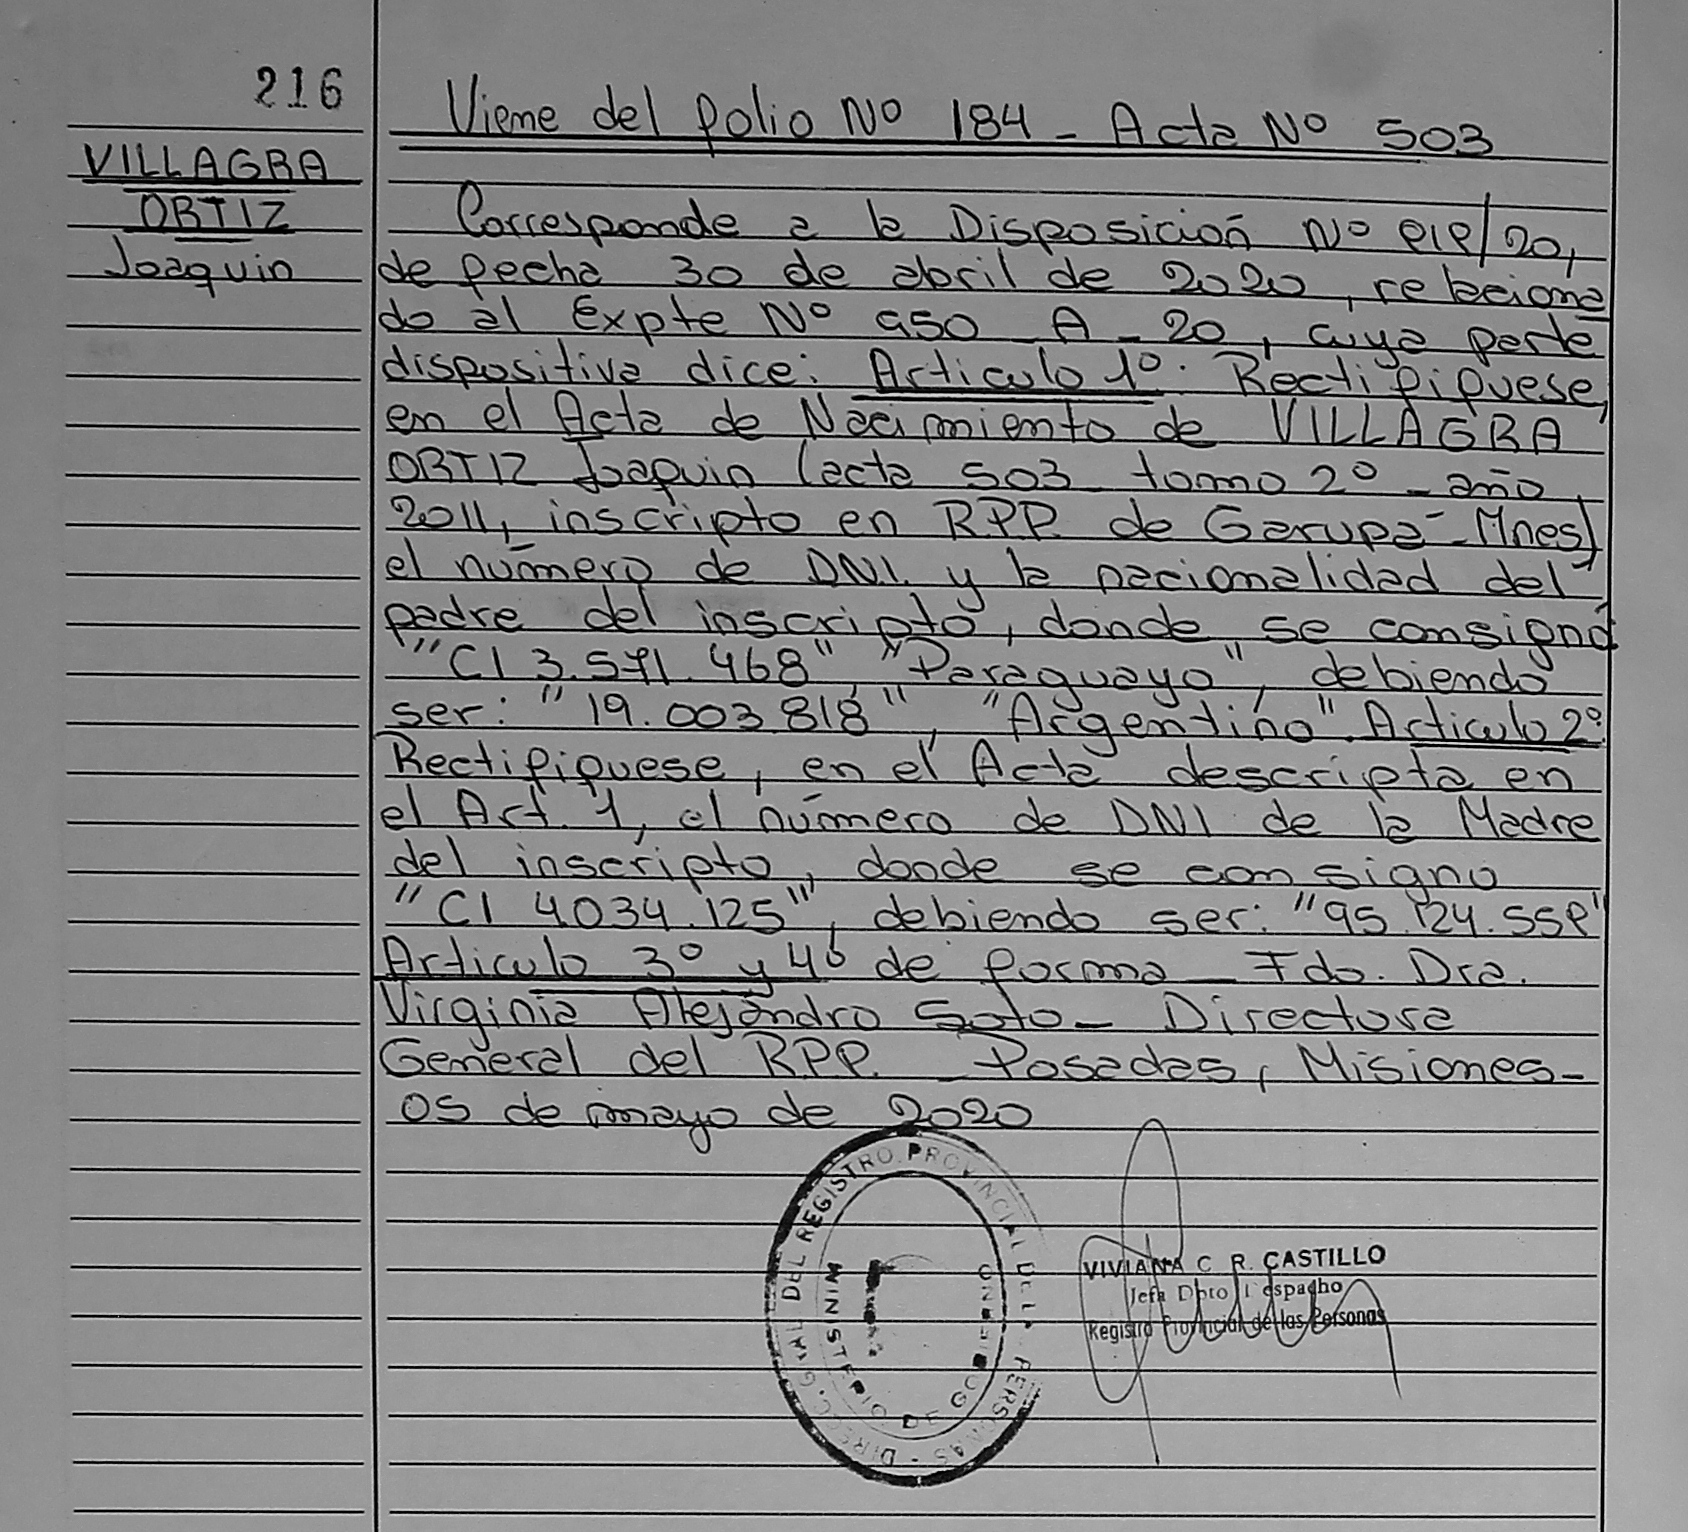 216
Viene del folio Nº 184 - Acta Nº 503
VILLAGRA
ORTIZ
Joaquin
Corresponde a la Disposición Nº 919/20,
de fecha 30 de abril de 2020, relaciona
do al Expte Nº 950 - A - 20, cuya parte
dispositiva dice: Articulo 1º. Rectifiquese,
en el Acta de Nacimiento de VILLAGRA
ORTIZ Joaquin (acta 503 tomo 2º - año
2011, inscripto en R.P.P. de Garupá - Mnes)
el número de DNI. y la nacionalidad del
padre del inscripto, donde se consignó
"CI 3.571.468", "Paraguayo", debiendo
ser: "19.003.818", "Argentino". Articulo 2º.
Rectifiquese, en el Acta descripta en
el Art. 1, el número de DNI de la Madre
del inscripto, donde se consigno
"CI 4034.125", debiendo ser: "95.124.559"
Articulo 3º y 4º de forma - Fdo. Dra.
Virginia Alejandra Soto - Directora
General del R.P.P. - Posadas, Misiones -
05 de mayo de 2020
DIRECC. GRAL DEL REGISTRO PROVINCIAL DE LAS PERSONAS
MINISTERIO DE GOBIERNO
VIVIANA C. R. CASTILLO
Jefa Dpto Despacho
Registro Provincial de las Personas